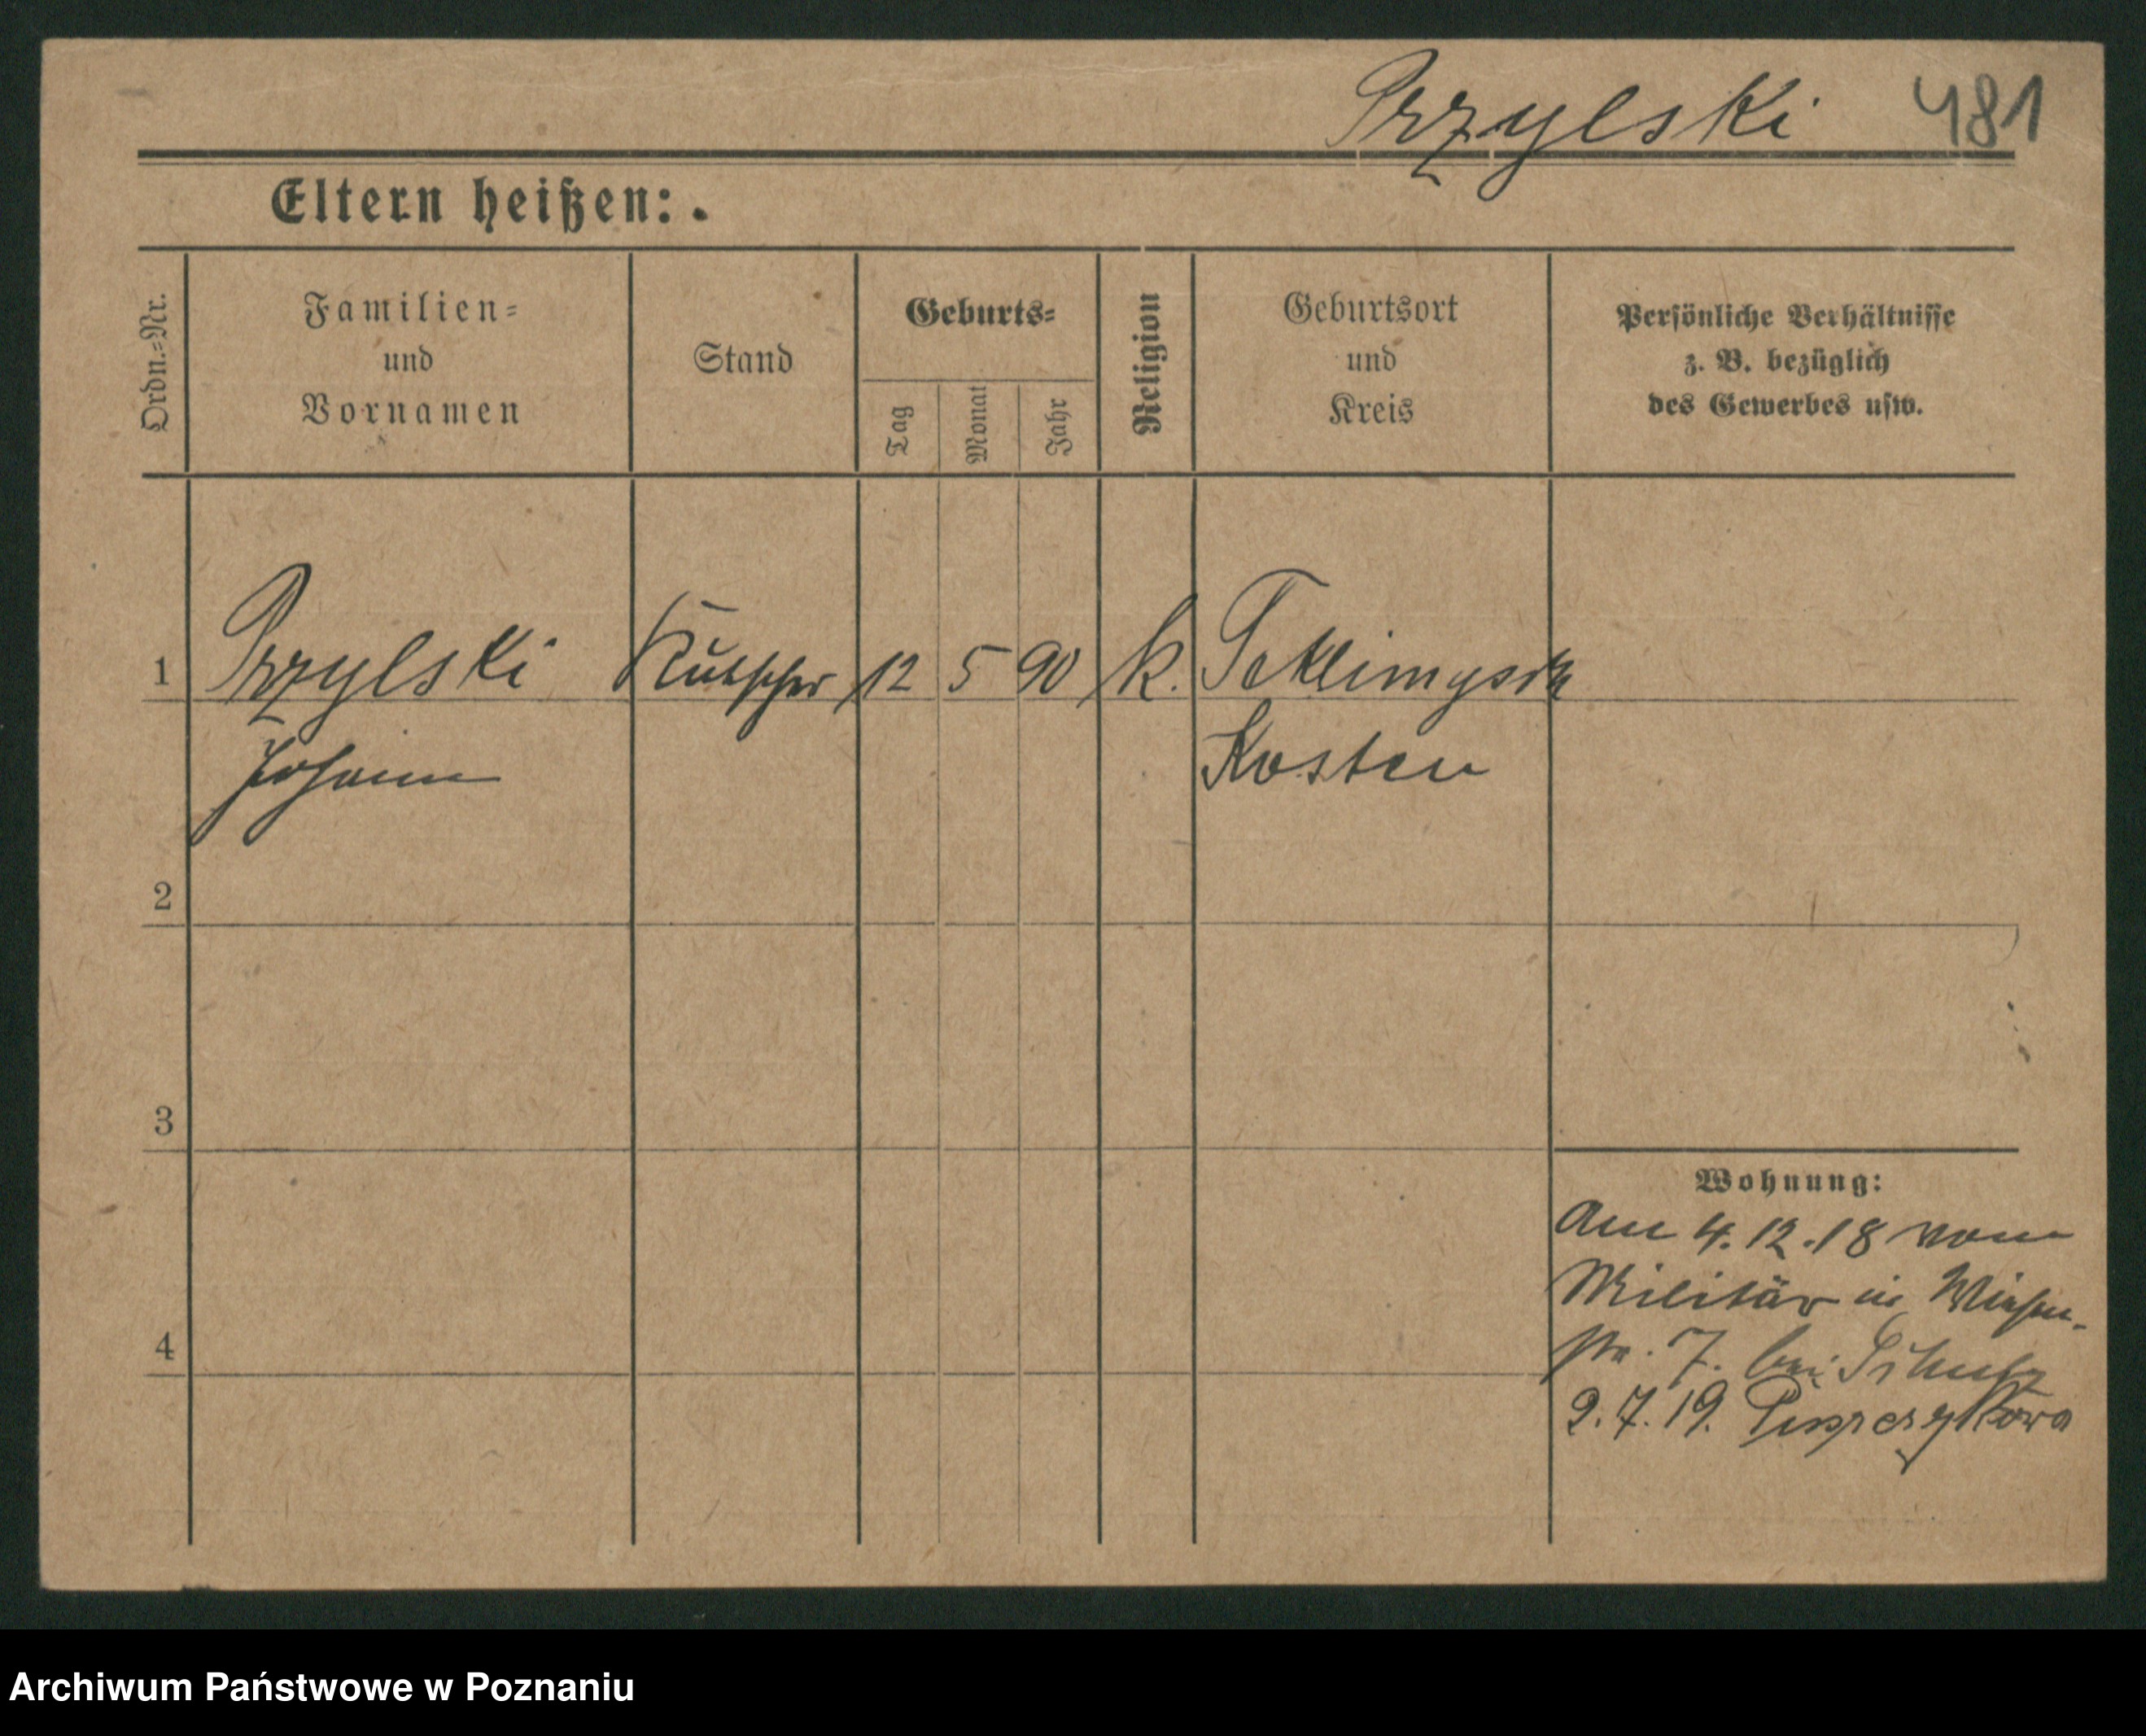 Przylski 481
Eltern heißen: .
Ordn.-Nr.
Familien-
und
Vornamen
Stand
Geburts-
Tag
Monat
Jahr
Religion
Geburtsort
und
Kreis
Persönliche Verhältnisse
z. B. bezüglich
des Gewerbes usw.
1 Przylski Kutscher 12 5 90 k.
Johann Kosten
2
3
4
Wohnung:
Am 4.12.18 vom
Militär in Wiesen-
str. 7. bei Schulz
2.7.19.
Archiwum Państwowe w Poznaniu